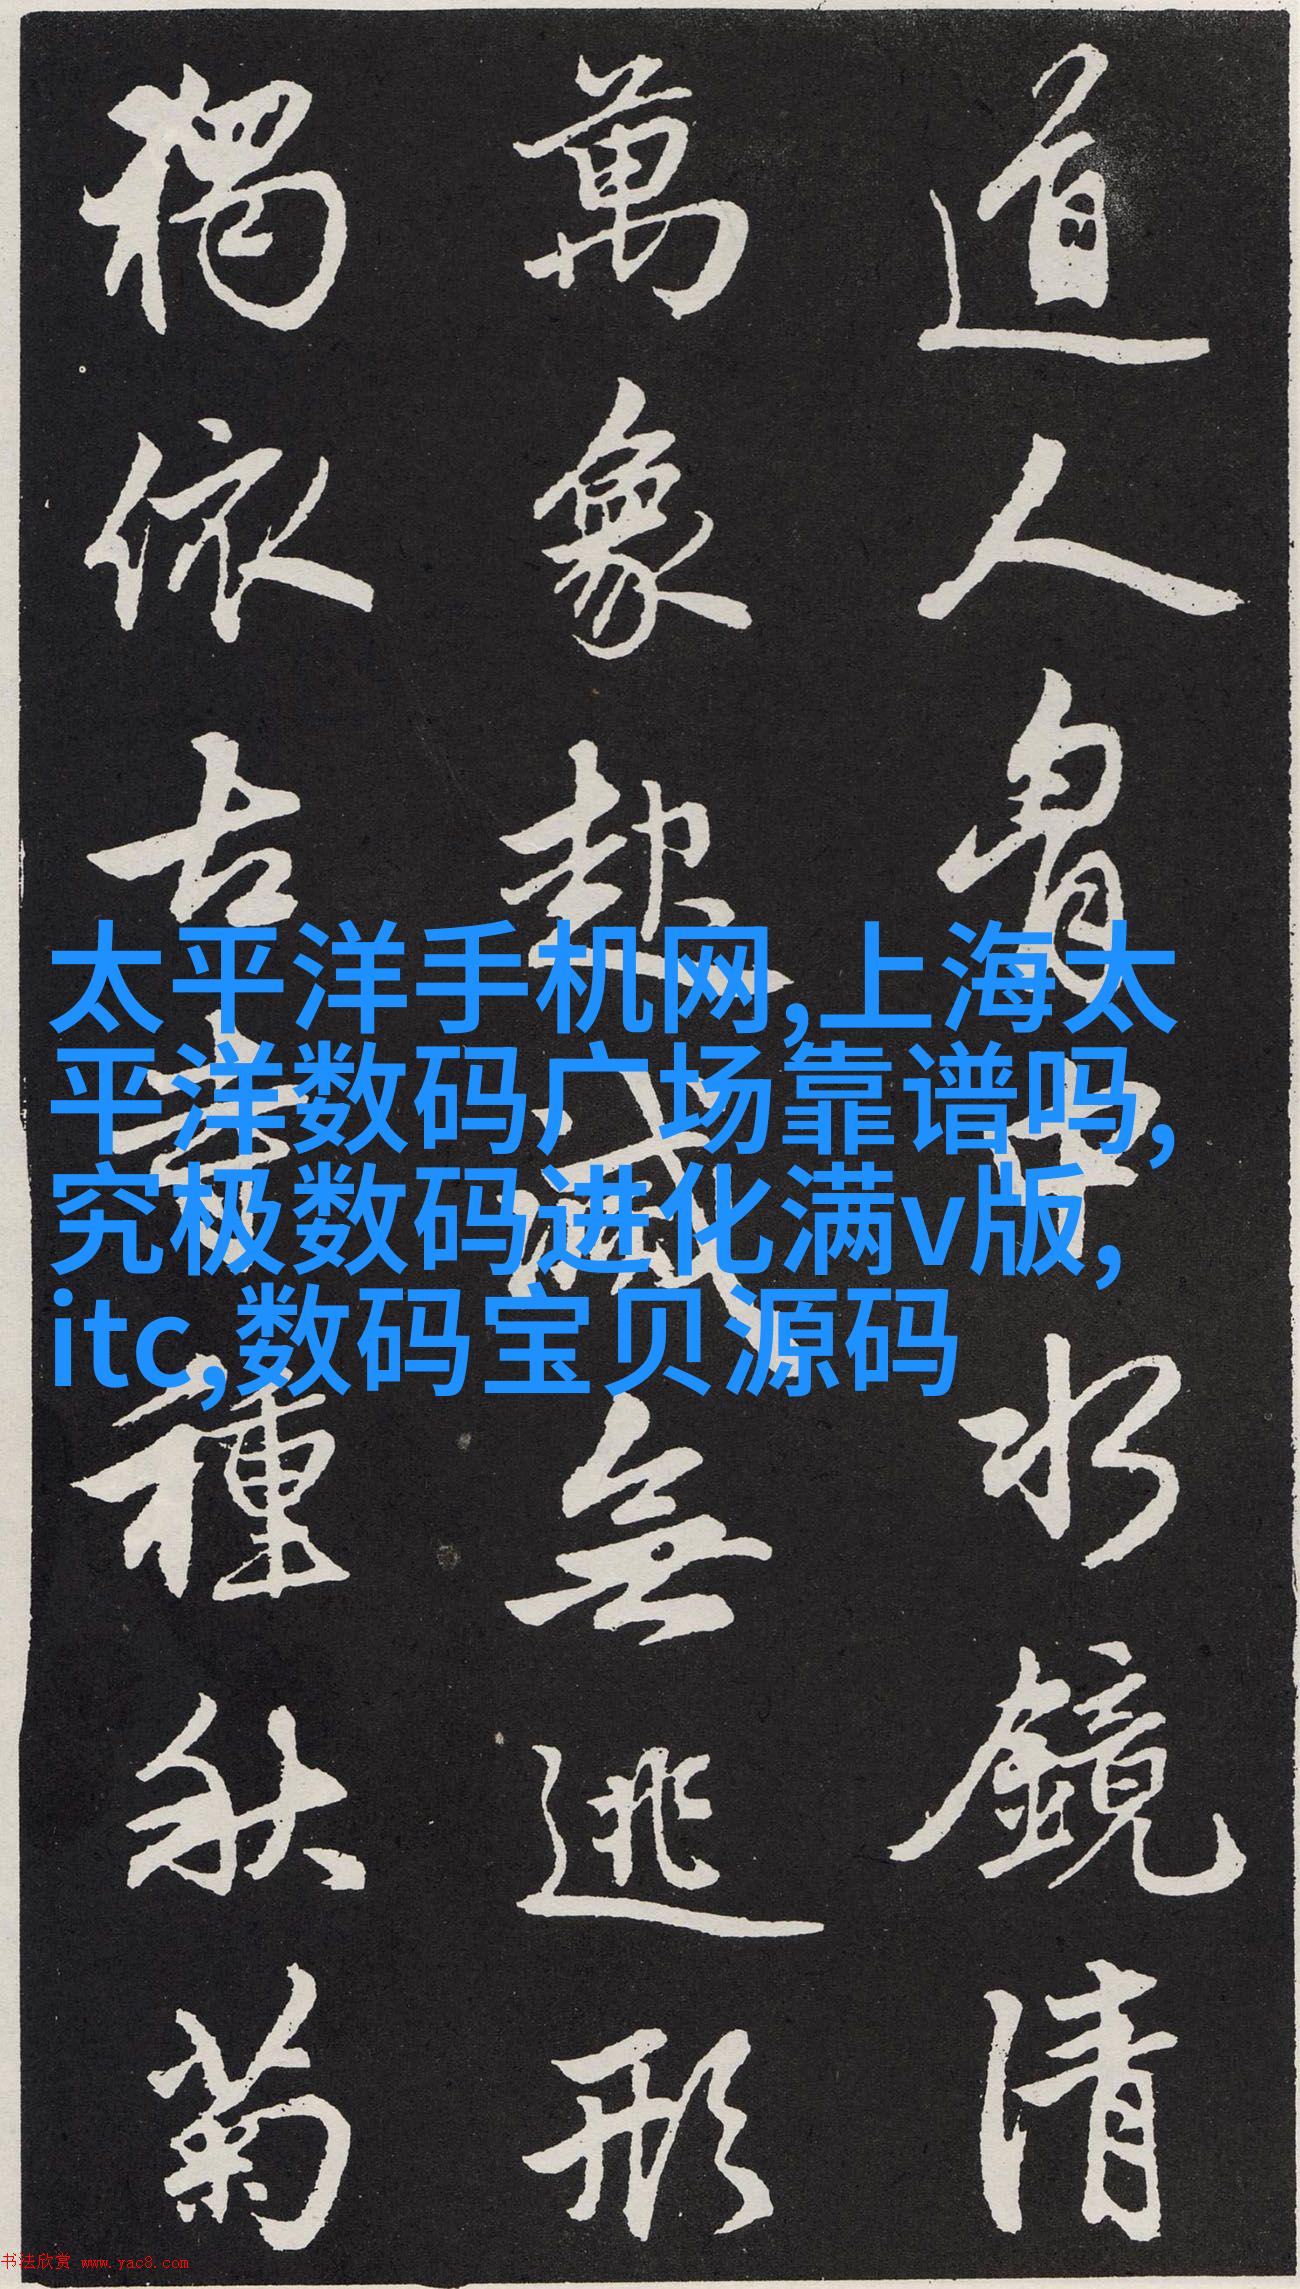 道人胷中水鏡清
萬象起滅無逃形
獨依古寺種秋菊
太平洋手机网,上海太
平洋数码广场靠谱吗,
究极数码进化满v版,
itc,数码宝贝源码
书法欣赏 www.yac8.com